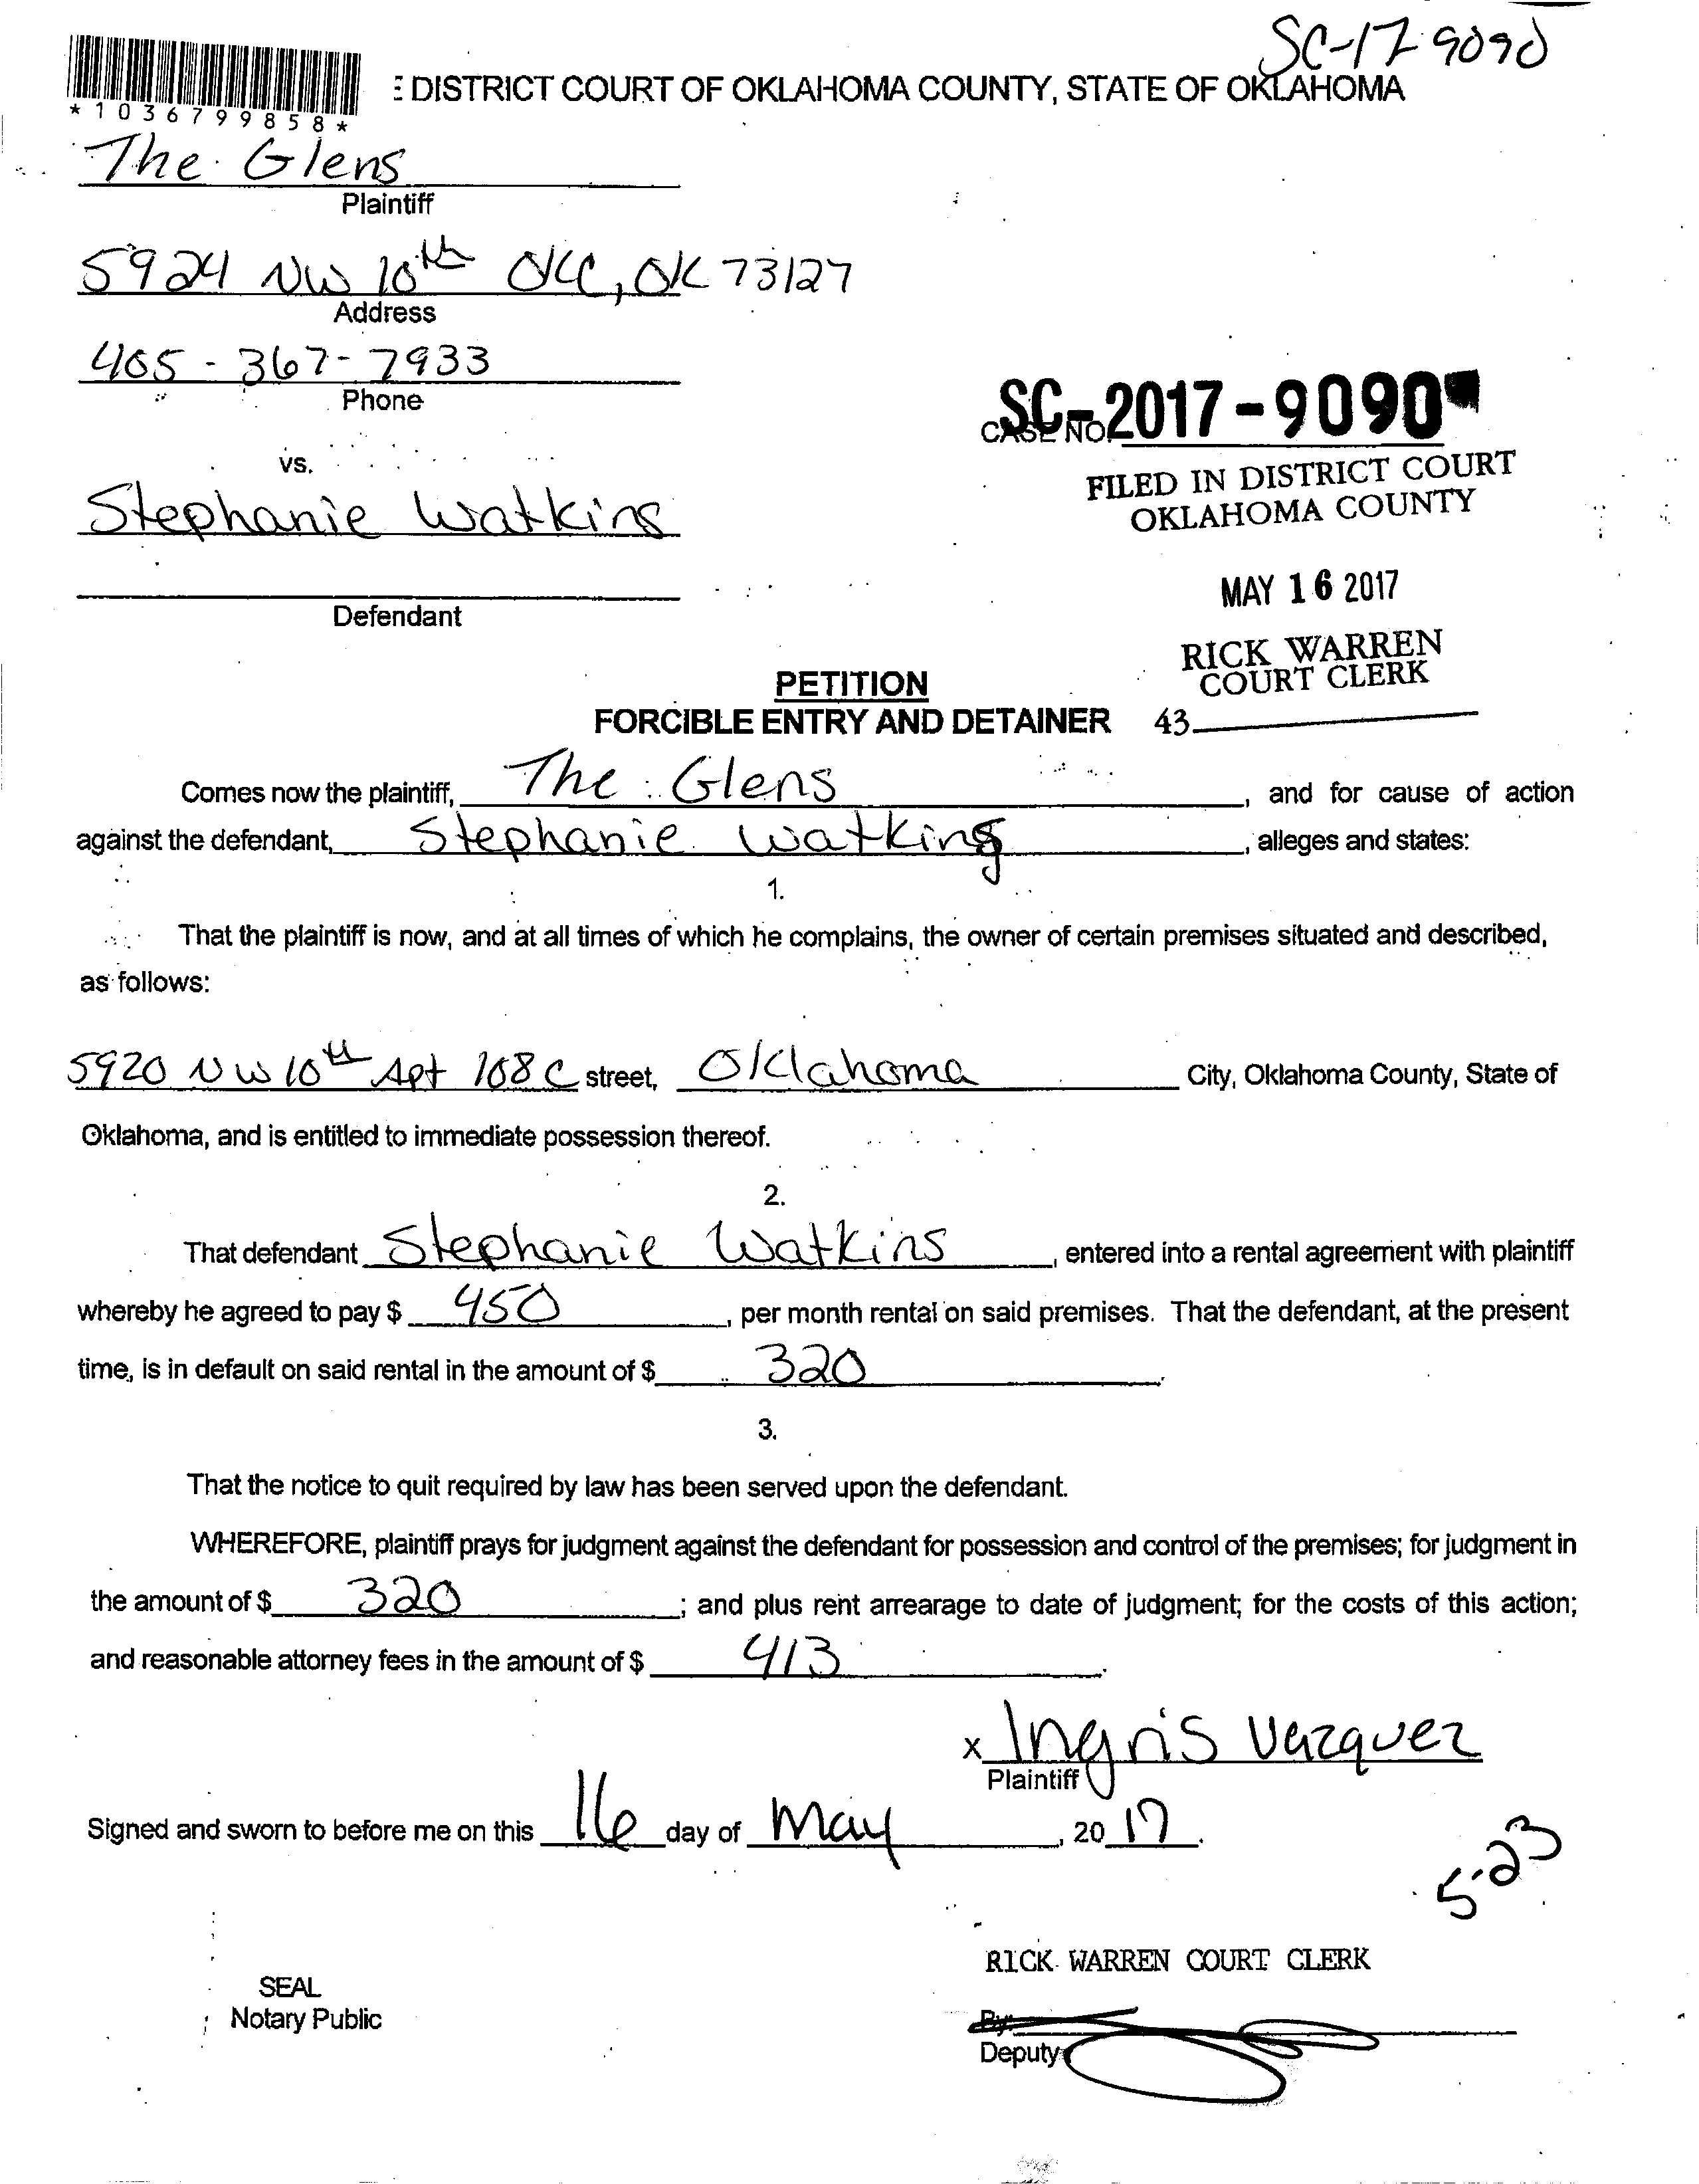 SC-17-9090
E DISTRICT COURT OF OKLAHOMA COUNTY, STATE OF OKLAHOMA
*1036799858*
The Glens
Plaintiff
5924 NW 10th OKC, OK 73127
Address
405-367-7933
Phone
SC-2017-9090
CASE NO.
vs.
FILED IN DISTRICT COURT
OKLAHOMA COUNTY
Stephanie Watkins
MAY 16 2017
Defendant
RICK WARREN
COURT CLERK
PETITION
FORCIBLE ENTRY AND DETAINER 43
Comes now the plaintiff, The Glens, and for cause of action
against the defendant, Stephanie Watkins, alleges and states:
1.
That the plaintiff is now, and at all times of which he complains, the owner of certain premises situated and described,
as follows:
5920 NW 10th Apt 108C street, Oklahoma City, Oklahoma County, State of
Oklahoma, and is entitled to immediate possession thereof.
2.
That defendant Stephanie Watkins, entered into a rental agreement with plaintiff
whereby he agreed to pay $ 450, per month rental on said premises. That the defendant, at the present
time, is in default on said rental in the amount of $ 320.
3.
That the notice to quit required by law has been served upon the defendant.
WHEREFORE, plaintiff prays for judgment against the defendant for possession and control of the premises; for judgment in
the amount of $ 320; and plus rent arrearage to date of judgment; for the costs of this action;
and reasonable attorney fees in the amount of $ 413.
x Ingris Vazquez
Plaintiff
Signed and sworn to before me on this 16 day of May, 2017.
5-23
RICK WARREN COURT CLERK
SEAL
Notary Public
By:
Deputy